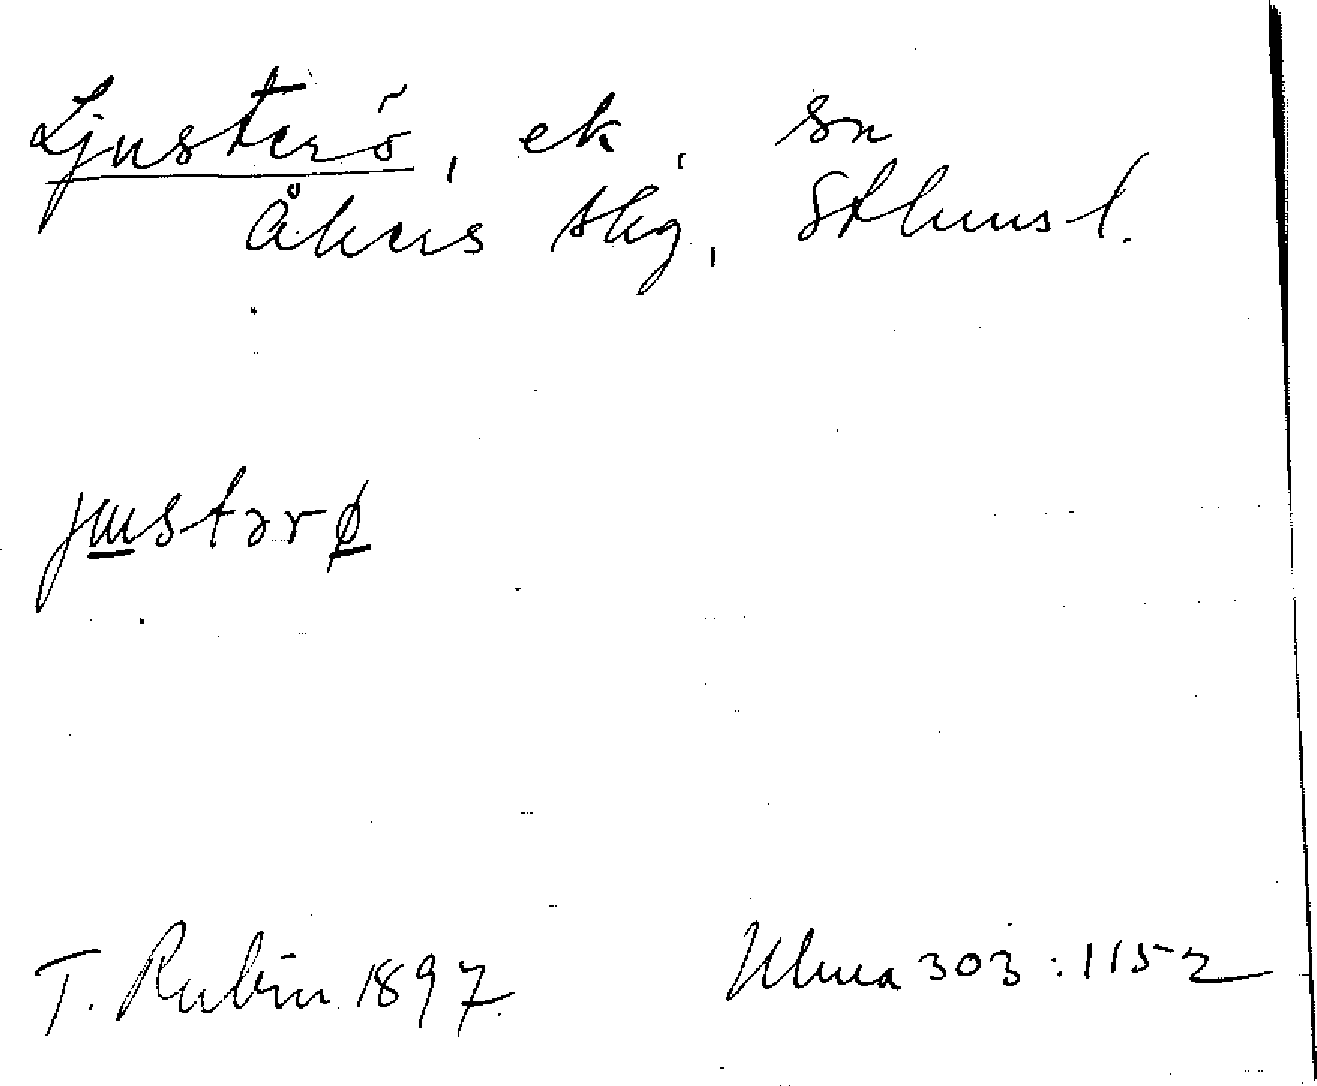 Ljusterö, ek, sn
Åkers skg, Sthms l.
jɯstərø
T. Rubin 1897
Ulma 303:1152